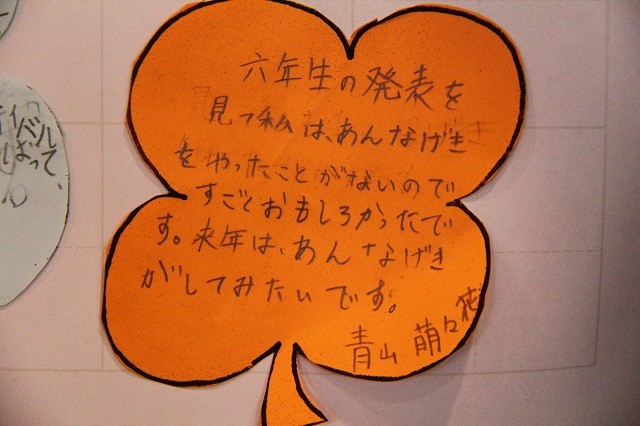 六年生の発表を
見て私は、あんなげき
をやったことがないので
すごくおもしろかったで
す。来年は、あんなげき
がしてみたいです。
青山 萌々花
バル
ばって、